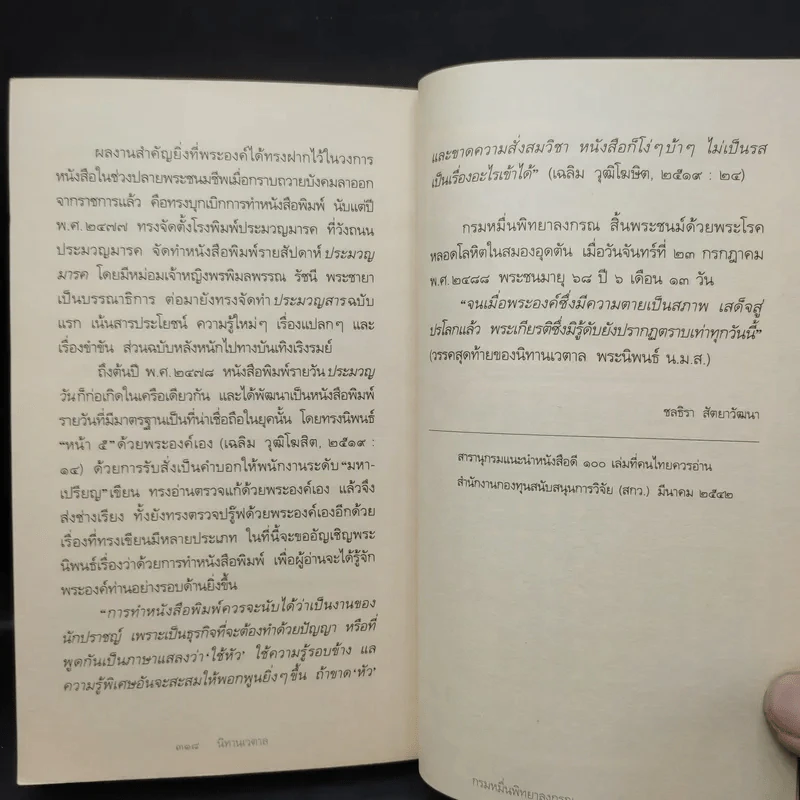 ผลงานสำคัญยิ่งที่พระองค์ได้ทรงฝากไว้ในวงการ
หนังสือในช่วงปลายพระชนมชีพเมื่อกราบถวายบังคมลาออก
จากราชการแล้ว คือทรงบุกเบิกการทำหนังสือพิมพ์ นับแต่ปี
พ.ศ.๒๔๗๗ ทรงจัดตั้งโรงพิมพ์ประมวญมารค ที่วังถนน
ประมวญมารค จัดทำหนังสือพิมพ์รายสัปดาห์ ประมวญ
มารค โดยมีหม่อมเจ้าหญิงพรพิมลพรรณ รัชนี พระชายา
เป็นบรรณาธิการ ต่อมายังทรงจัดทำ ประมวญสาร ฉบับ
แรก เน้นสารประโยชน์ ความรู้ใหม่ๆ เรื่องแปลกๆ และ
เรื่องขำขัน ส่วนฉบับหลังหนักไปทางบันเทิงเริงรมย์
ถึงต้นปี พ.ศ.๒๔๗๘ หนังสือพิมพ์รายวัน ประมวญ
วัน ก็ก่อเกิดในเครือเดียวกัน และได้พัฒนาเป็นหนังสือพิมพ์
รายวันที่มีมาตรฐานเป็นที่น่าเชื่อถือในยุคนั้น โดยทรงนิพนธ์
“หน้า ๕” ด้วยพระองค์เอง (เฉลิม วุฒิโฆสิต, ๒๕๑๙ :
๑๔) ด้วยการรับสั่งเป็นคำบอกให้พนักงานระดับ “มหา-
เปรียญ” เขียน ทรงอ่านตรวจแก้ด้วยพระองค์เอง แล้วจึง
ส่งช่างเรียง ทั้งยังทรงตรวจปรู๊ฟด้วยพระองค์เองอีกด้วย
เรื่องที่ทรงเขียนมีหลายประเภท ในที่นี้จะขออัญเชิญพระ
นิพนธ์เรื่องว่าด้วยการทำหนังสือพิมพ์ เพื่อผู้อ่านจะได้รู้จัก
พระองค์ท่านอย่างรอบด้านยิ่งขึ้น
“การทำหนังสือพิมพ์ควรจะนับได้ว่าเป็นงานของ
นักปราชญ์ เพราะเป็นธุรกิจที่จะต้องทำด้วยปัญญา หรือที่
พูดกันเป็นภาษาแสลงว่า ‘ใช้หัว’ ใช้ความรู้รอบข้าง แล
ความรู้พิเศษอันจะสะสมให้พอกพูนยิ่งๆ ขึ้น ถ้าขาด ‘หัว’
๓๑๘ นิทานเวตาล
และขาดความสั่งสมวิชา หนังสือก็โง่ๆ บ้าๆ ไม่เป็นรส
เป็นเรื่องอะไรเข้าได้” (เฉลิม วุฒิโฆษิต, ๒๕๑๙ : ๒๔)
กรมหมื่นพิทยาลงกรณ สิ้นพระชนม์ด้วยพระโรค
หลอดโลหิตในสมองอุดตัน เมื่อวันจันทร์ที่ ๒๓ กรกฎาคม
พ.ศ.๒๔๘๘ พระชนมายุ ๖๘ ปี ๖ เดือน ๑๓ วัน
“จนเมื่อพระองค์ซึ่งมีความตายเป็นสภาพ เสด็จสู่
ปรโลกแล้ว พระเกียรติซึ่งมิรู้ดับยังปรากฏตราบเท่าทุกวันนี้”
(วรรคสุดท้ายของนิทานเวตาล พระนิพนธ์ น.ม.ส.)
ชลธิรา สัตยาวัฒนา
สารานุกรมแนะนำหนังสือดี ๑๐๐ เล่มที่คนไทยควรอ่าน
สำนักงานกองทุนสนับสนุนการวิจัย (สกว.) มีนาคม ๒๕๔๒
กรมหมื่นพิทยาลงกรณ